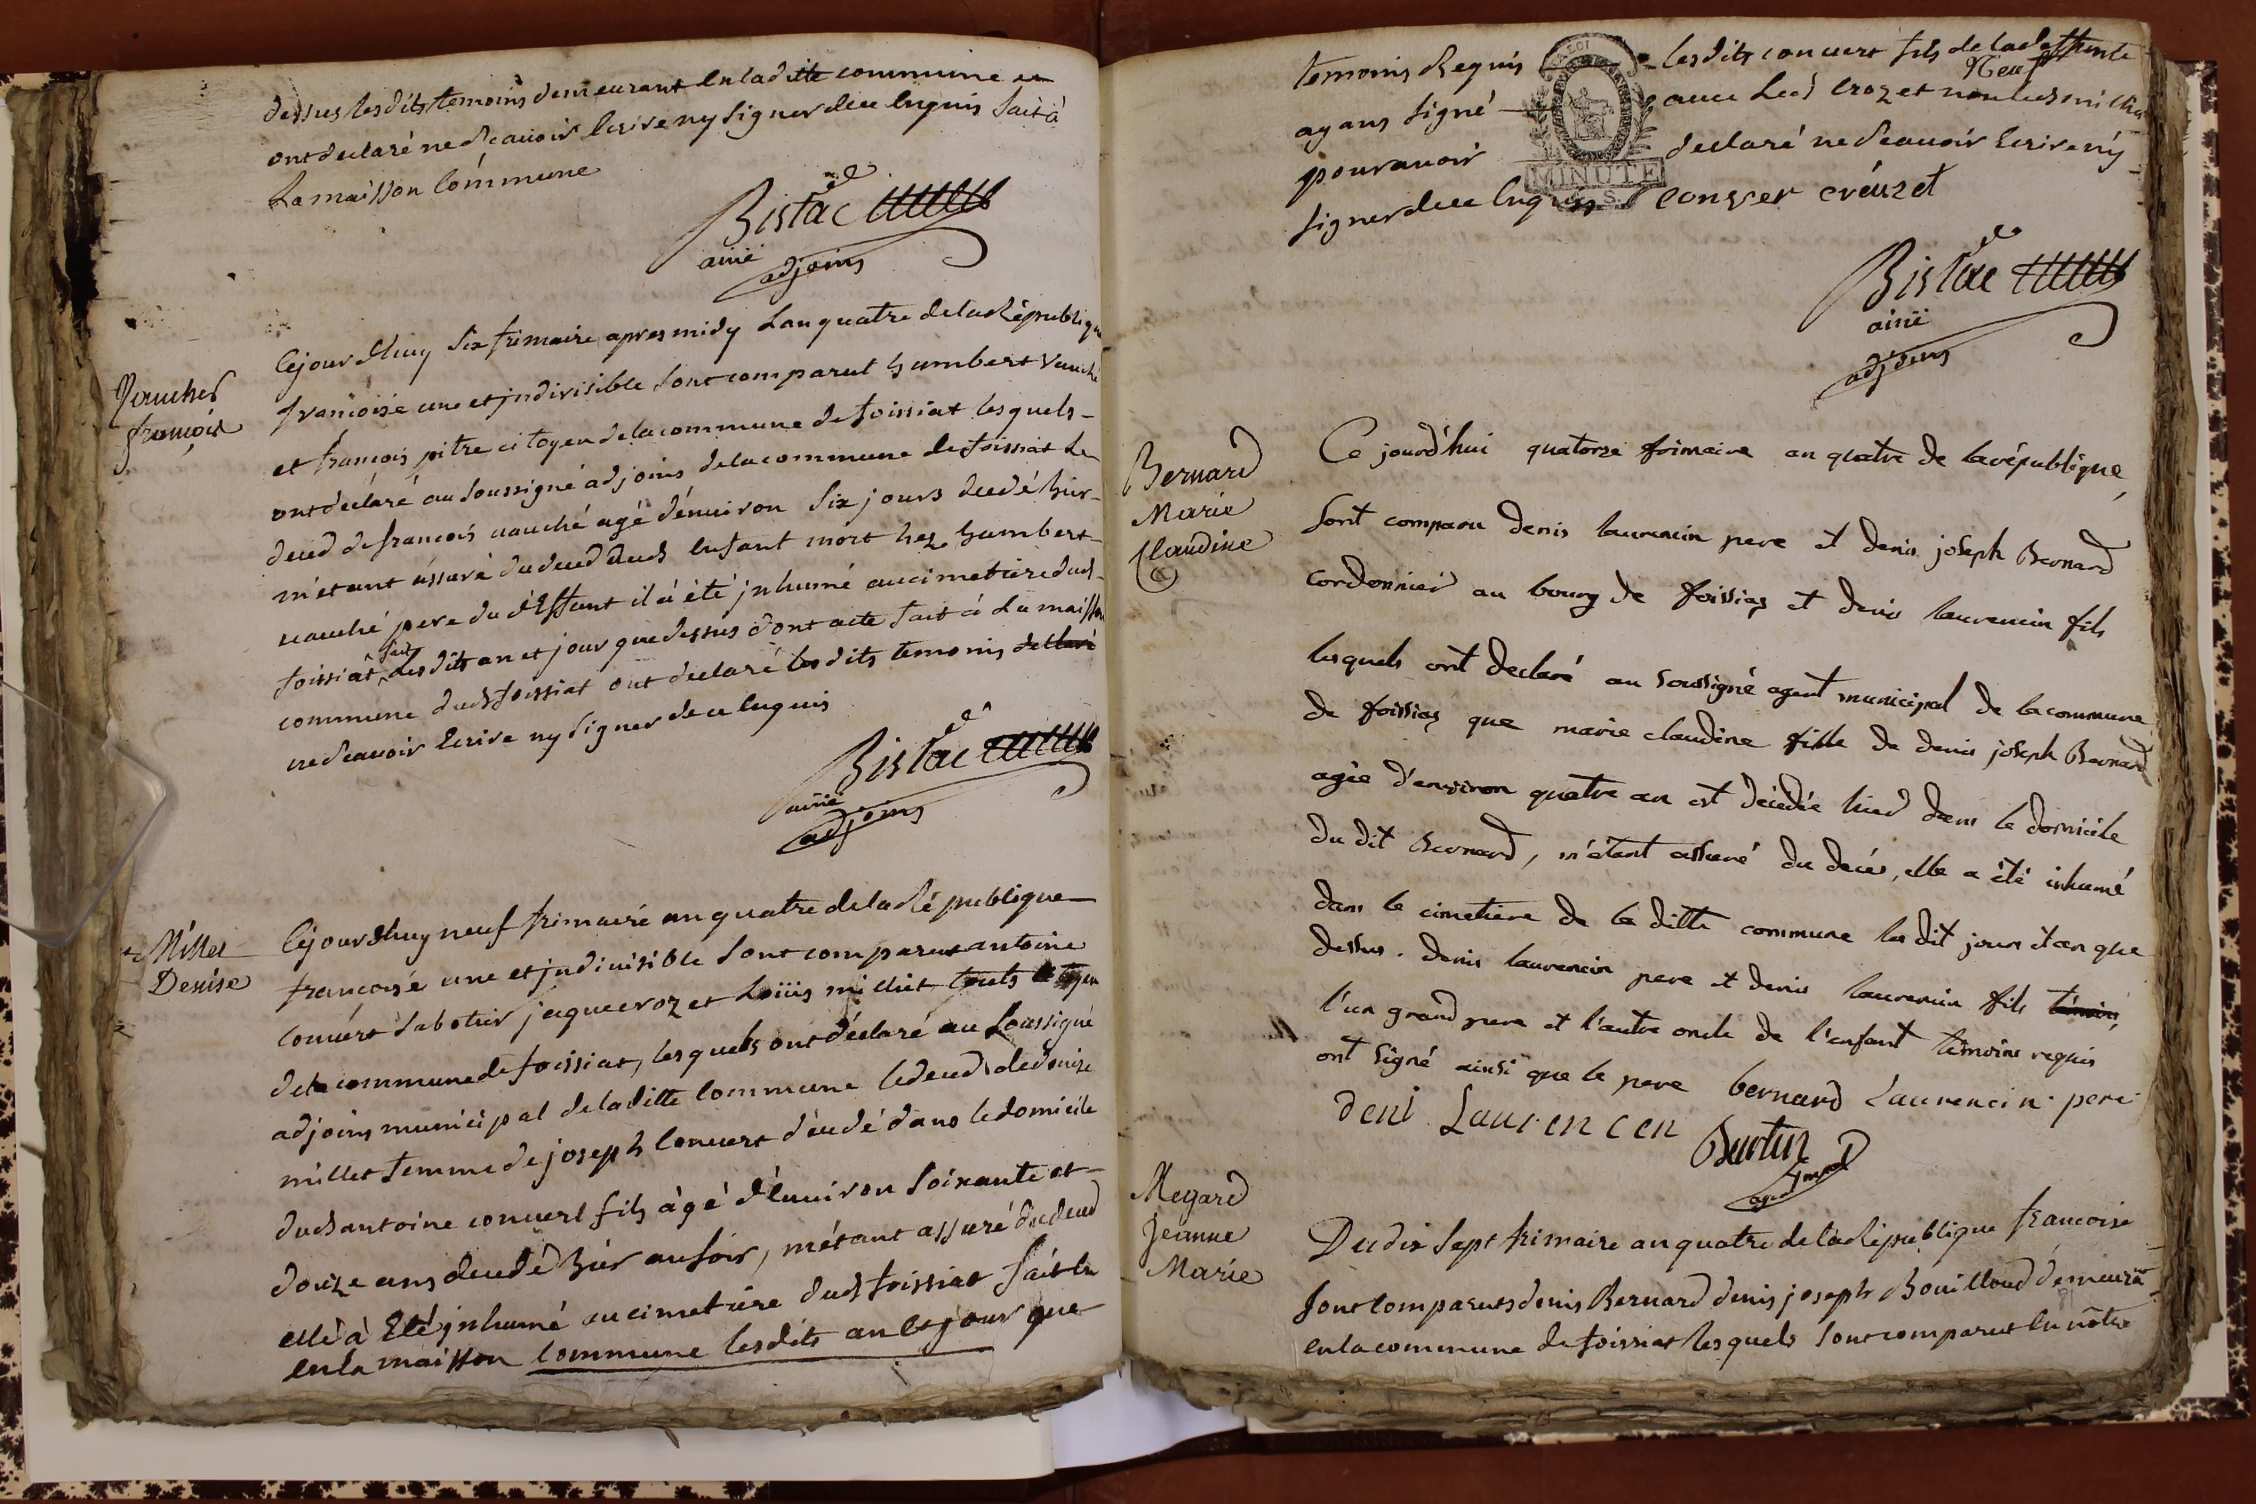 dessus lesdits temoins demeurant en ladite commune en
ont declaré ne scavoir Ecrire ny signer de ce enquis fait à
La maisson commune
Bistac
ainé
adjoint
Vauchez
françois
Cejourdhuy six frimaire apres midy Lan quatre de la République
francoise une et jndivisible sont comparut humbert Vauché
et françois pitre citoyen de la commune de foissiat lesquels
ont déclaré au soussigné adjoint de la commune de foissiat Le
deced de francois vauché agé dénuiron six jours decedé hier
m'étant assuré du deced dud enfant mort chez humbert
vauché pere du déffunt il à été jnhumé au cimetiere dud
foissiat fait Lesdits an et jour que dessus dont acte fait à La maisson
commune dud foissiat ont declaré lesdits temoins declaré
ne scavoir Ecrire ny signer de ce enquis
Bistac
ainé
adjoint
Millet
Denise
Cejourdhuy neuf frimaire an quatre de la République
francoisé une et jndivisible sont comparut antoine
convert sabotier jaque croz et Loüis milliet touts
de la commune de foissiat, lesquels ont déclaré au soussigné
adjoint municipal de la ditte commune le deced de denise
millet femme de joseph convert décédé dans le domicile
dud antoine convert fils àgé d'enuiron soixante et
douze ans decedé hier au soir, métant assuré du deced
elle à Eté jnhumé au cimetiere dud foissiat fait en
en la maisson commune lesdits an et jour que
temoins Requis lesdits convert fils de la deffunte
Neuf
ayans signé avec Led croz et non led millier
pour avoir declaré ne scavoir Ecrire ny
LOI
MINUTE
signer de ce enquis convert creuzet
Bistac
ainé
adjoint
Bernard
Marie
Claudine
Ce jourd'hui quatorze frimaire an quatre de la république
sont comparu denis laurencin pere et denis joseph Bernard
cordonnier au bourg de foissiag et denis laurencin fils
lesquels ont declaré au soussigné agent municipal de la commune
de foissiag que marie claudine fille de denis joseph Bernard
agée d'environ quatre an est décedée hier dans le domicile
du dit Bernard, m'étant assuré du decés, elle a été inhumé
dans le cimetiere de la ditte commune les dit jour et an que
dessus. denis laurencin pere et denis laurencin fils témoins,
l'un grand pere et l'autre oncle de l'enfant témoins requis
ont signé ainsi que le pere bernard Laurencin pere
deni Laurencen
Burtin
agent mpal
Megard
Jeanne
Marie
Du dix sept frimaire an quatre de la République francoise
sont comparuts denis Bernard denis joseph Bouilloud demeurā
en la commune de foissiat lesquels sont comparut en nôtre